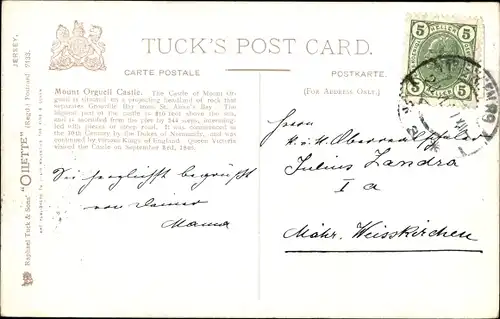 TUCK'S POST CARD.
CARTE POSTALE
POSTKARTE.
(FOR ADDRESS ONLY.)
JERSEY, 2133.
Raphael Tuck & Sons' "OILETTE" (Regd.) Postcard
Mount Orgueil Castle. The Castle of Mount Or-
gueil is situated on a projecting headland of rock that
separates Grouville Bay from St.
highest part of the castle is 310 feet above the sea,
and is ascended from the pier by 244 steps,
with pieces of steep road. It was commenced in
the 10th Century by the Dukes of Normandy, and
continued by various Kings of England. Queen Victoria
visited the Castle on September 3rd, 1846.
Sei herzlichst begrüßt
von Deiner
Mama
5 HELLER 5
5 5
Herrn
k. u. k. Oberrealschüler
Julius Zandra
I a
Mähr. Weisskirchen